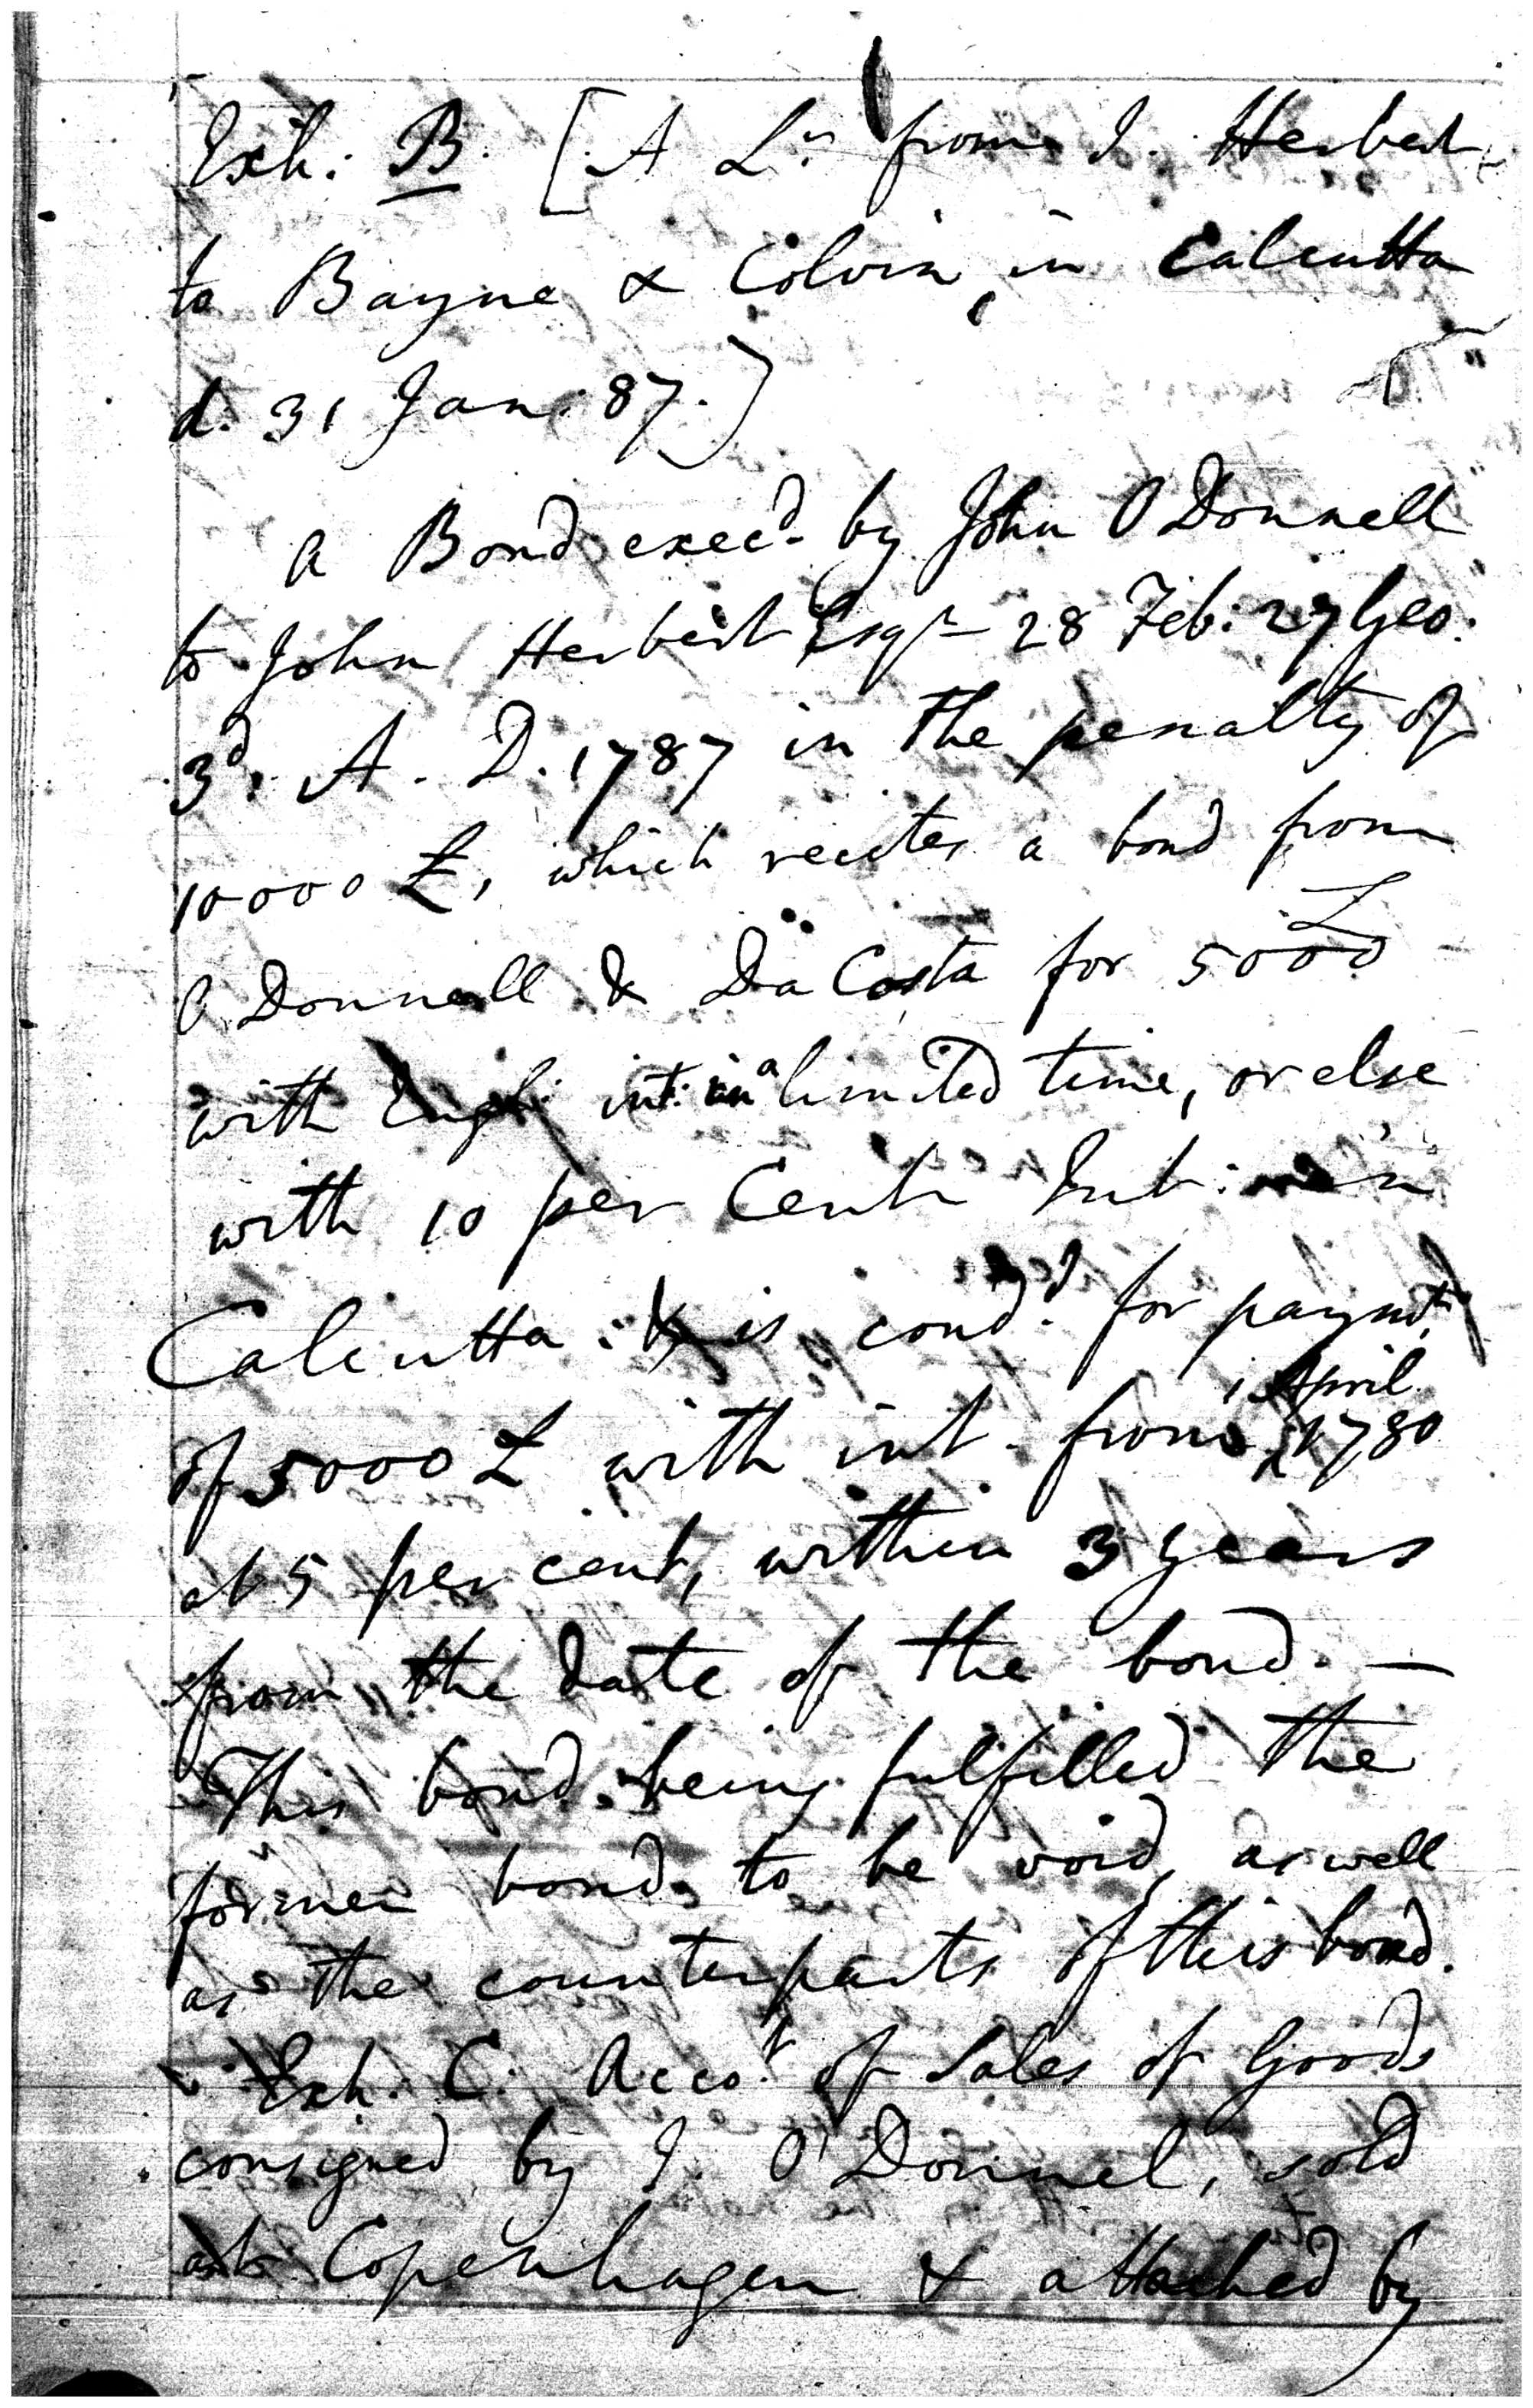 Exh: B. [A Lr. from J. Herbert
to Bayne & Colvin, in Calcutta
d. 31 Jan: 87.]
A Bond execd. by John O Donnell
to John Herbert Esqr - 28 Feb: 27 Geo:
3d. A. D. 1787 in the penalty of
10000 £, which recites a bond from
O Donnell & Da Costa for 5000 £
with Engl: int: in a limited time, or else
with 10 per Cent Int: in
Calcutta: & is cond.d for paymt.
of 5000 £ with int. from 1 April 1780
at 5 per cent, within 3 years
from the date of the bond. —
This bond being fulfilled the
former bond to be void, as well
as the counterparts of this bond.
Exh. C. Accot. of Sales of Goods
consigned by J. O'Donnel, sold
at Copenhagen & attached by